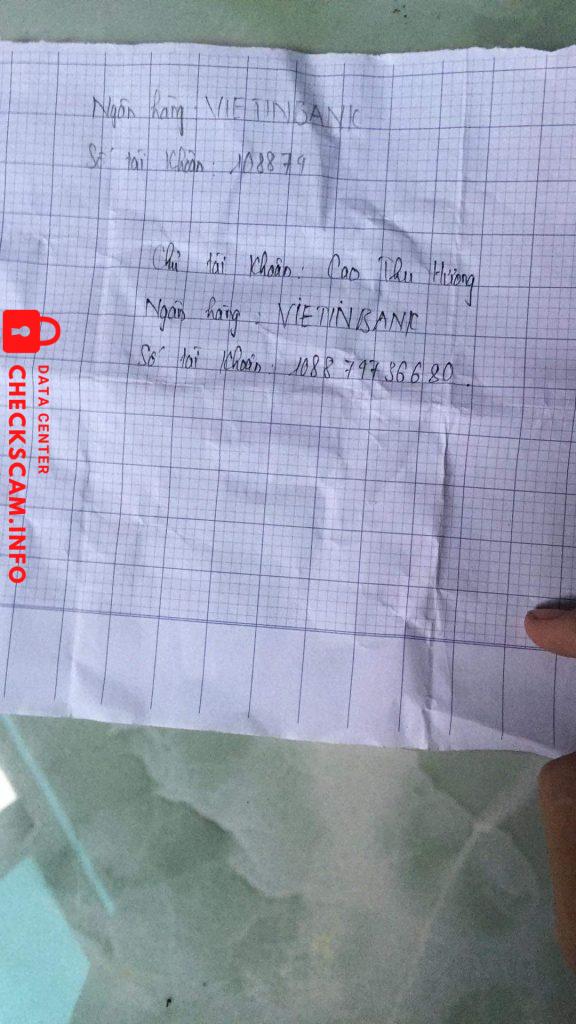 Ngân hàng : VIETINBANK
Số tài khoản : 108879
Chủ tài khoản : Cao Thu Hương
Ngân hàng : VIETINBANK
Số tài khoản : 1088 79736680.
DATA CENTER
CHECKSCAM.INFO